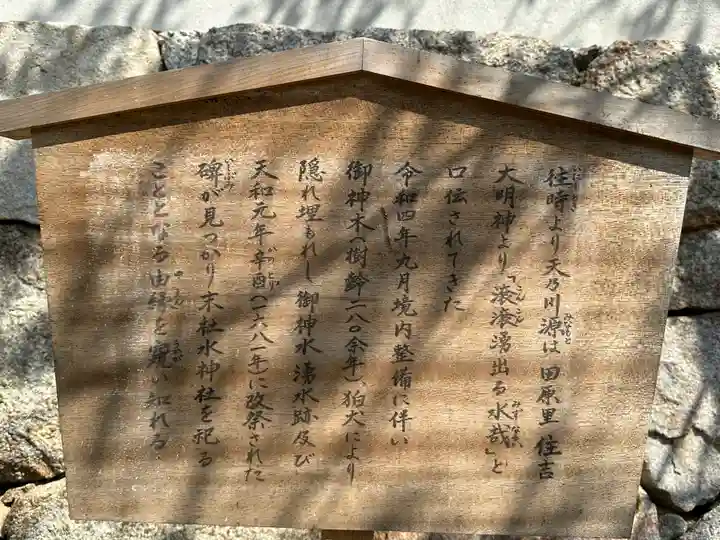 往時より天乃川源は田原里住吉
大明神より「滾滾湧出る水哉」と
口伝されてきた
令和四年九月境内整備に伴い
御神木(樹齢二八〇余年)、狛犬により
隠れ埋もれし御神水湧水跡及び
天和元年辛酉(一六八一年)に改祭された
碑が見つかり末社水神社を祀る
こととなる由縁を窺い知れる